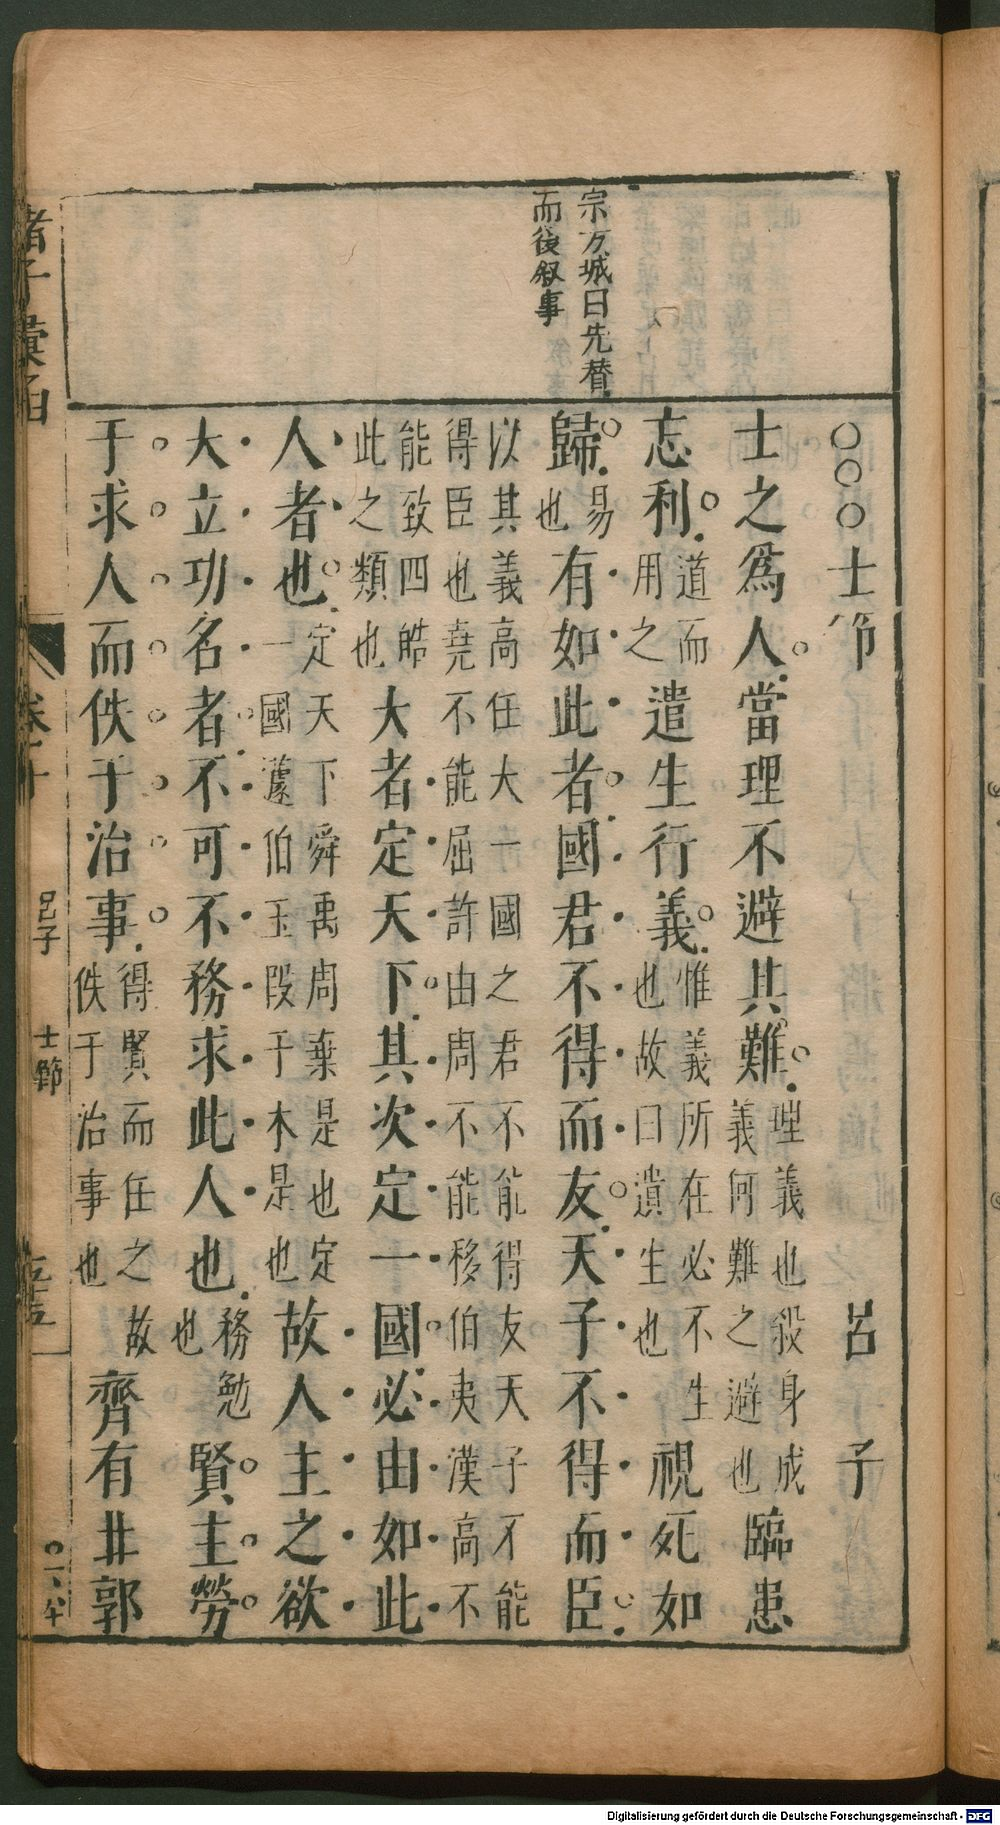 宗方城曰先替
而後叙事
○○○士節 呂子
士之爲人當理不避其難理義也殺身成義何難之避也臨患
忘利道而用之遣生行義惟義所在必不生也故曰遺生也視死如
歸易也有如此者國君不得而友天子不得而臣
以其義高任大一國之君不能得友天子不能
得臣也堯不能屈許由周不能移伯夷漢高不
能致四皓此之類也大者定天下其次定一國必由如此
人者也定天下舜禹周棄是也定一國蘧伯玉段于木是也故人主之欲
大立功名者不可不務求此人也務勉也賢主勞
于求人而佚于治事得賢而任之佚于治事也故齊有北郭
諸子彙函
卷十
呂子
士節
五十五
Digitalisierung gefördert durch die Deutsche Forschungsgemeinschaft - DFG